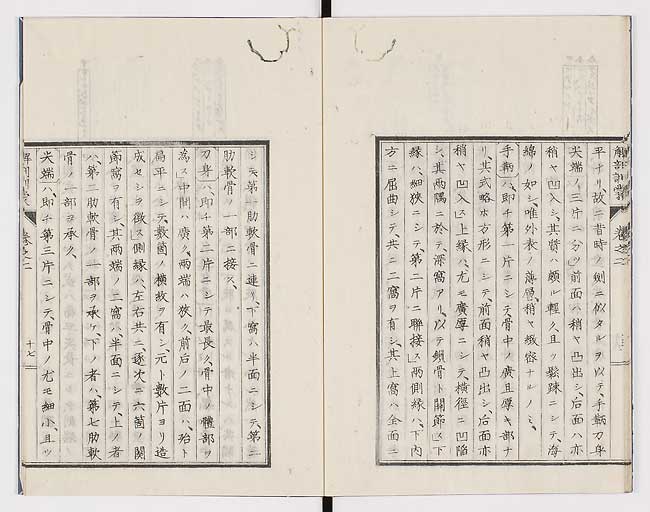 解剖訓蒙
卷之二
平ナリ、故ニ昔時ノ劍ニ似タルヲ以テ、手鞆刀身
尖端ノ三片ニ分ツ」前面ハ稍ヤ凸出シ、后面ハ亦
稍ヤ凹入シ、其質ハ頗ル輕ク、且ツ鬆疎ニシテ、海
綿ノ如シ、唯外表ノ薄層、稍ヤ緻密ナルノミ、
手鞆ハ、即チ第一片ニシテ、骨中ノ廣且厚キ部ナ
リ、其式略ホ方形ニシテ、前面稍ヤ凸出シ、后面亦
稍ヤ凹入ス」上緣ハ、尤モ廣厚ニシテ、橫徑ニ凹陷
シ、其兩隅ニ於テ、深窩アリ、以テ鎖骨ト關節ス」下
緣ハ、細狹ニシテ、第二片ニ聯接ス」兩側緣ハ、下內
方ニ屈曲シテ、共ニ二窩ヲ有シ、其上窩ハ全面ニ
シテ、第一肋軟骨ニ連リ、下窩ハ半面ニシテ、第二
肋軟骨ノ一部ニ接ス、
刀身ハ、即チ第二片ニシテ最長ク、骨中ノ體部ヲ
為ス」中間ハ廣ク、兩端ハ狹ク、前后ノ二面ハ、殆ト
扁平ニシテ、數箇ノ橫故ヲ有シ、元ト數片ヨリ造
成セシヲ徵ス」側緣ハ、左右共ニ、逐次ニ六箇ノ關
節窩ヲ有シ、其兩端ノ二窩ハ、半面ニシテ、上ノ者
ハ、第二肋軟骨ノ一部ヲ承ケ、下ノ者ハ、第七肋軟
骨ノ一部ヲ承ク、
尖端ハ、即チ第三片ニシテ、骨中ノ尤モ細小且ツ
解剖訓蒙
卷之二
十七